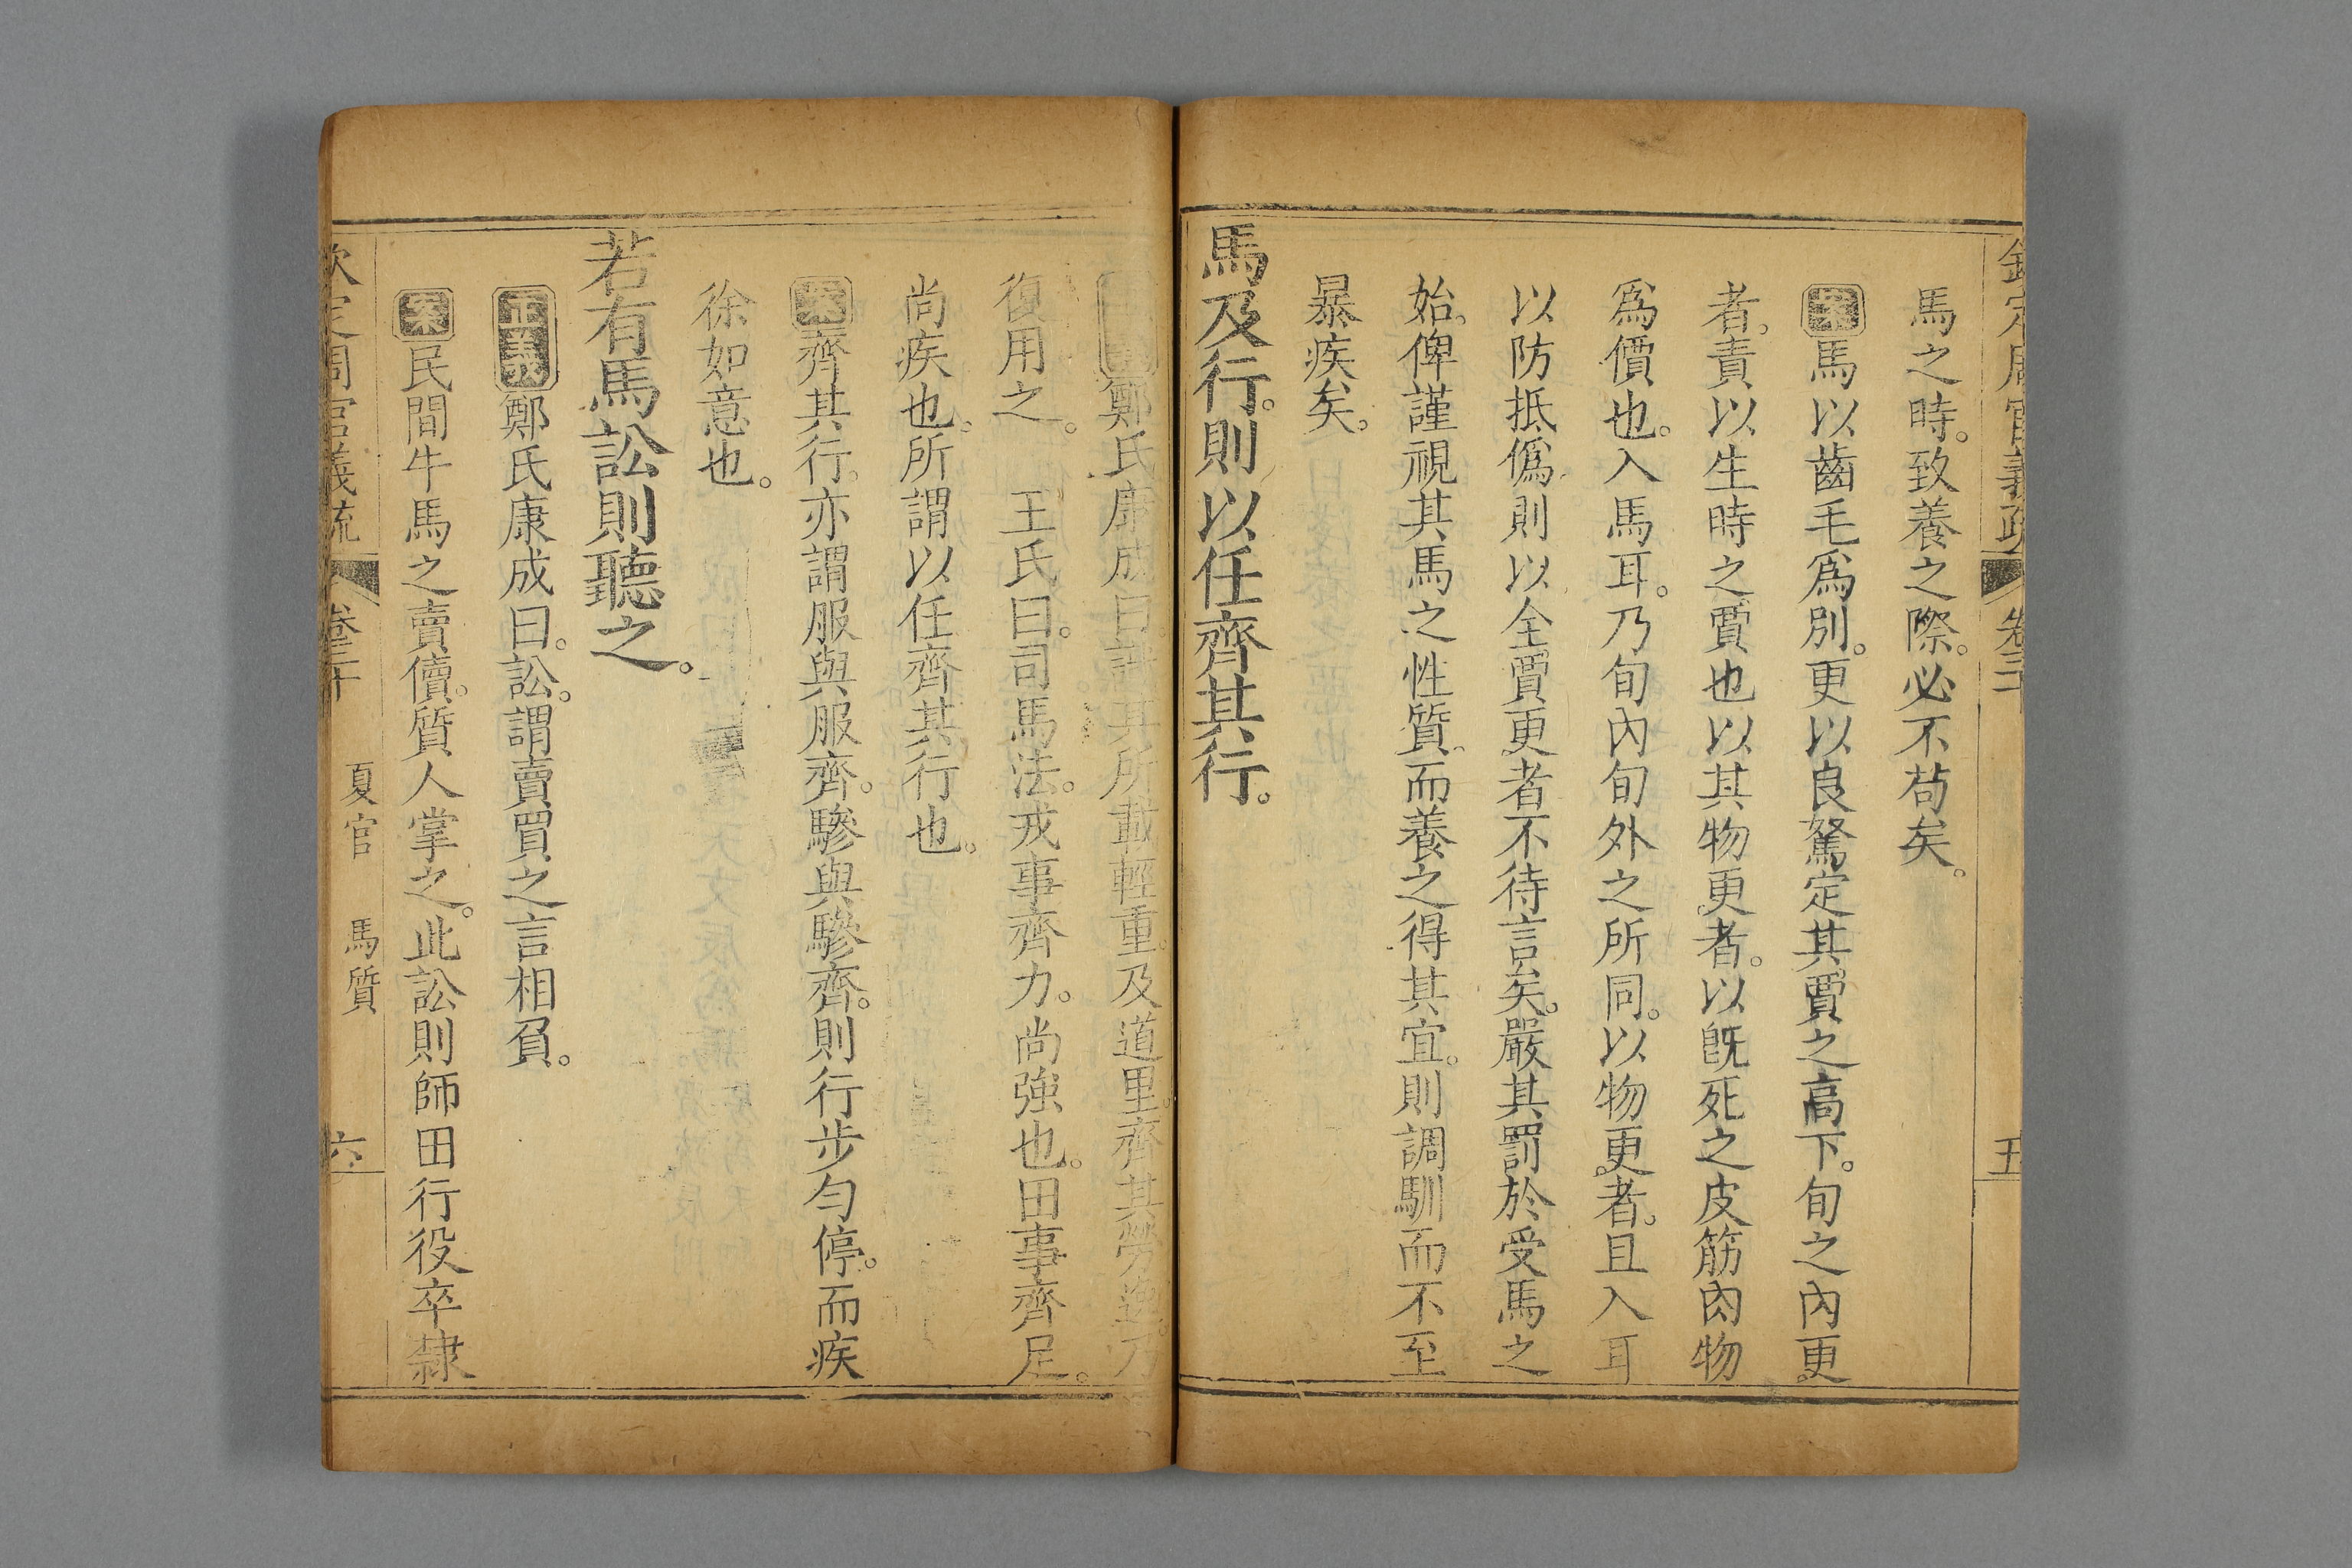 欽定周官義疏 卷三十 五
馬之時。致養之際。必不苟矣。
案馬以齒毛爲別。更以良駑定其賈之高下。旬之內更。
者。責以生時之賈也以其物更。者。以旣死之皮筋肉物
爲價也。入馬耳。乃旬內旬外之所同。以物更。者。且入耳
以防抵僞則以全賈更者不待言矣。嚴其罰於受馬之
始。俾謹視其馬之性質。而養之得其宜。則調馴而不至
暴疾矣。
馬及行。則以任齊其行。
鄭氏康成曰。識其所載輕重。及道里。齊其勞逸。乃
復用之。 王氏曰。司馬法。戎事齊力。尚強也。田事齊足。
尚疾也。所謂以任齊其行也。
案齊其行。亦謂服與服齊。驂與驂齊。則行步勻停。而疾
徐如意也。
若有馬訟則聽之。
正義鄭氏康成曰。訟。謂賣買之言相負。
案民間牛馬之賣儥。質人掌之。此訟則師田行役卒隸
欽定周官義疏 卷三十 夏官 馬質 六